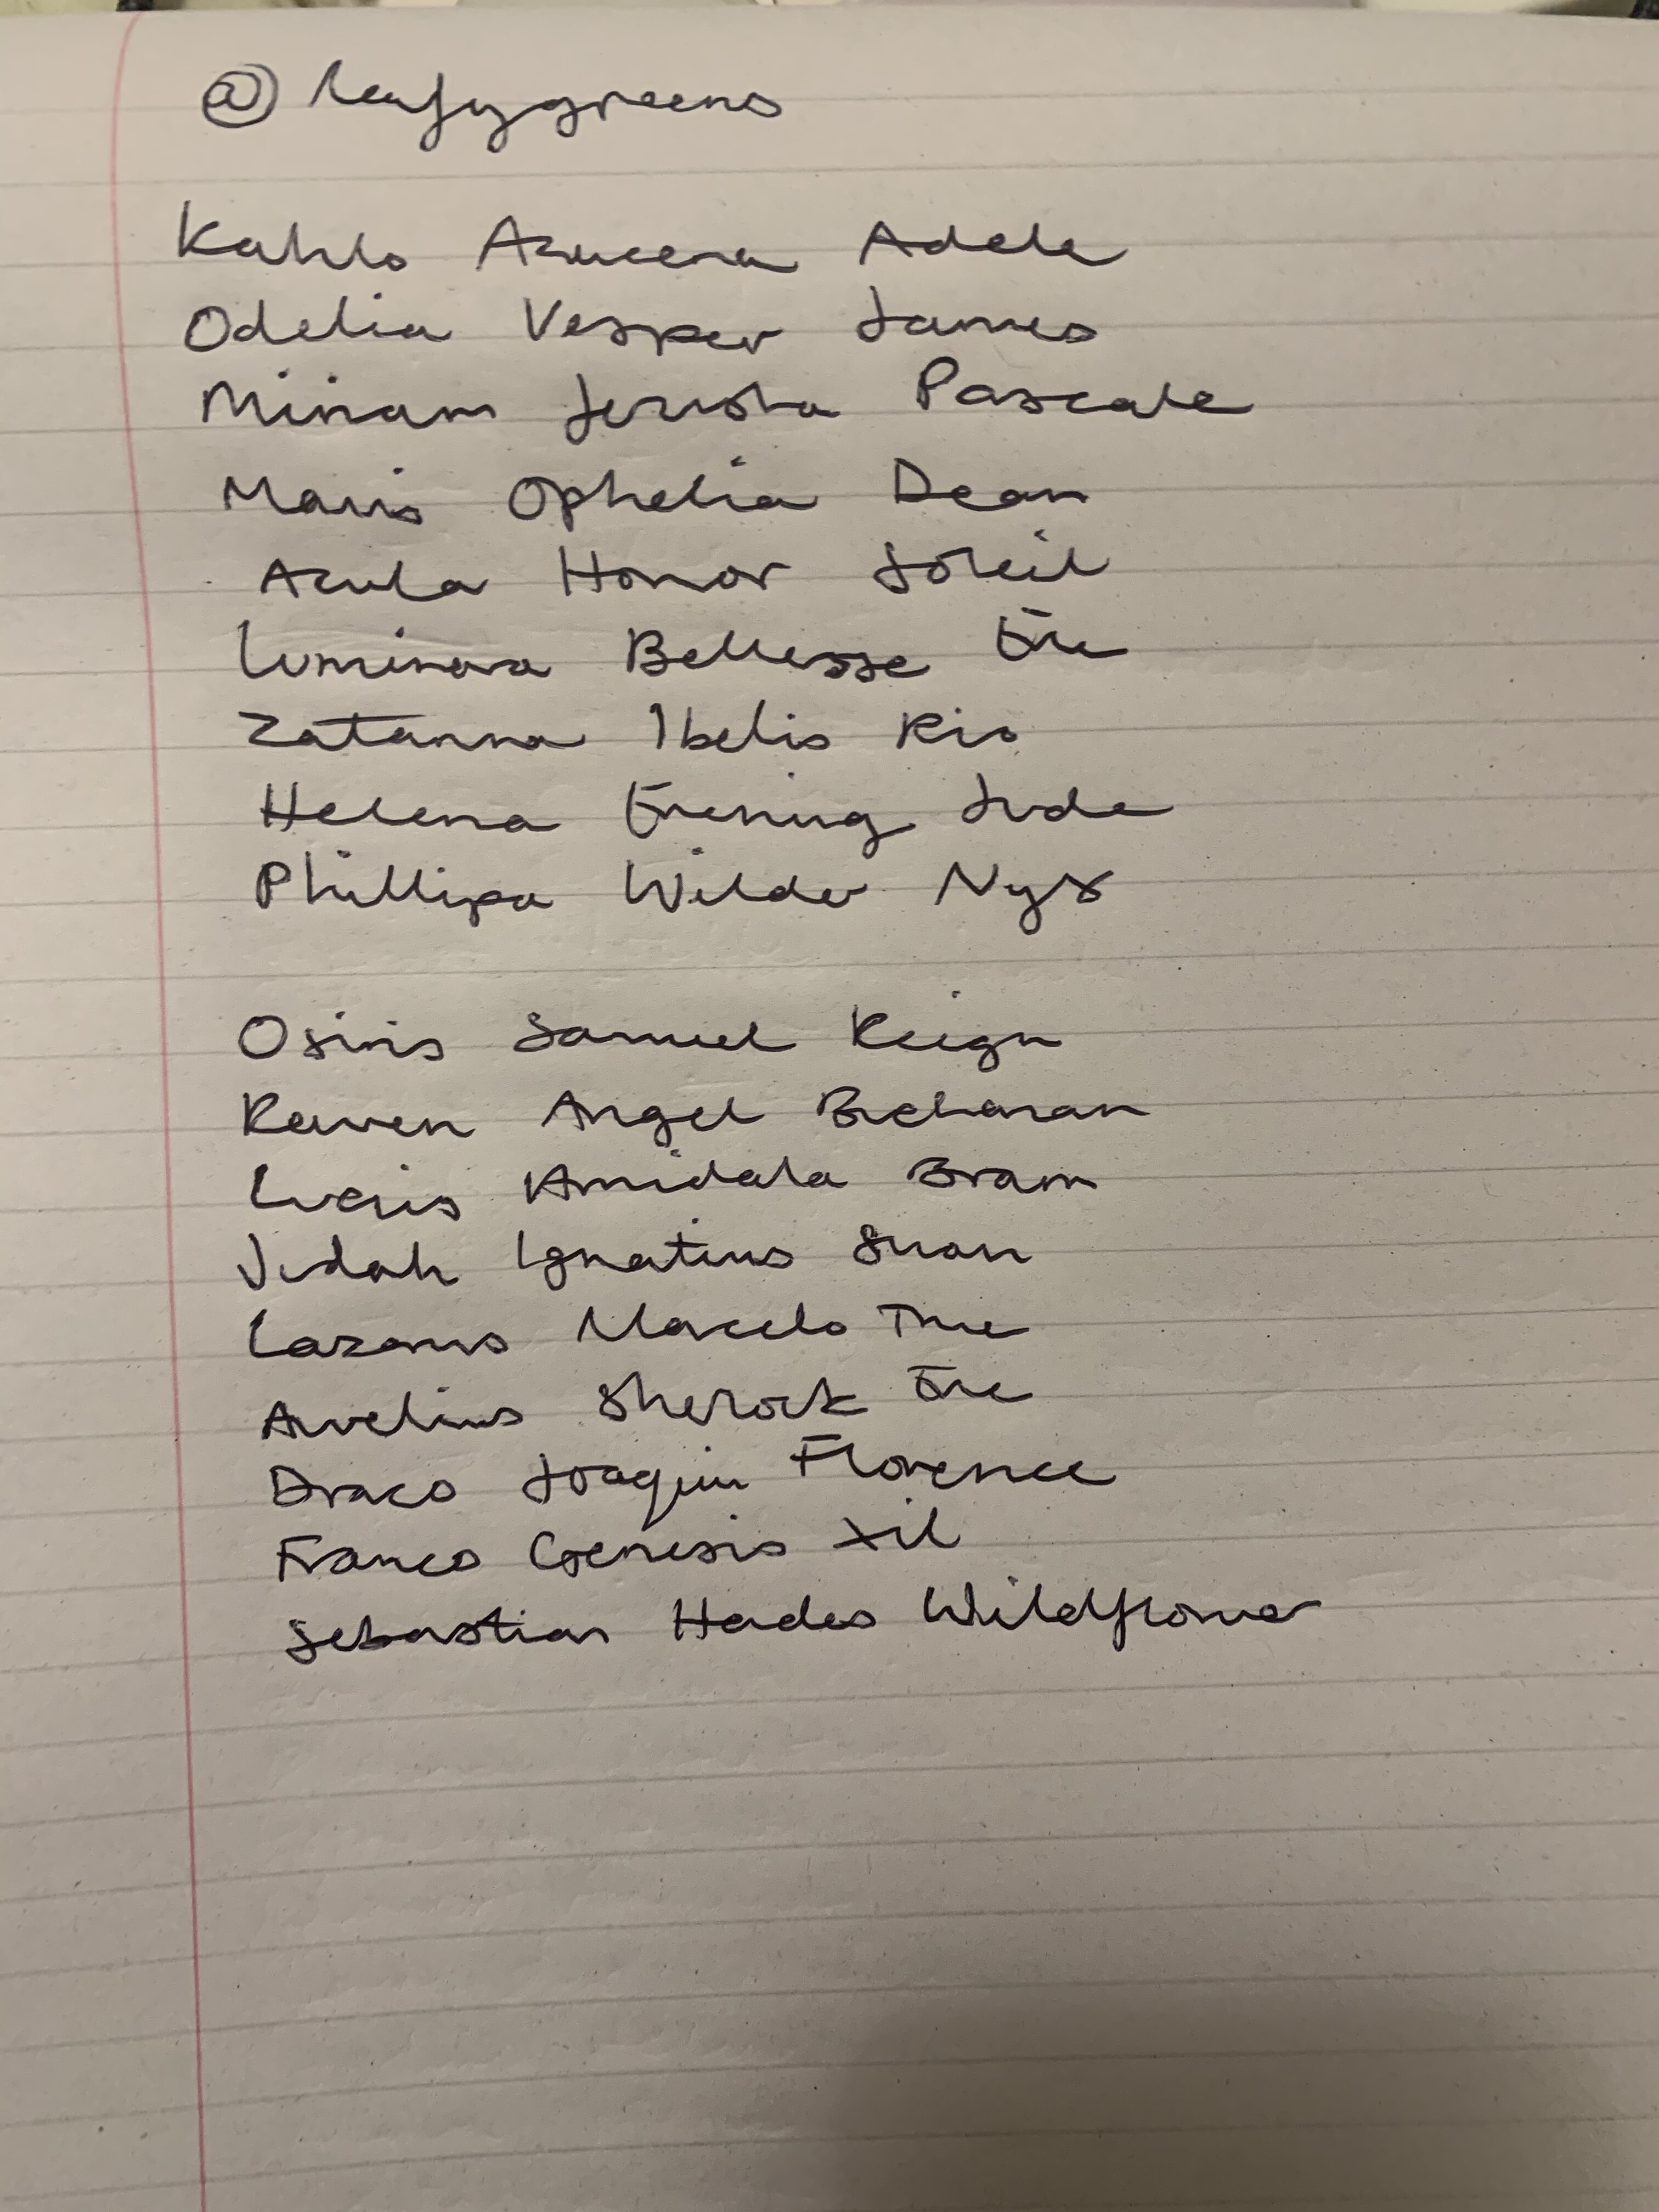 @leafygreens
Kahlo Azucena Adele
Odelia Vesper James
Miriam Jerusha Pascale
Maris Ophelia Dean
Azula Honor Soleil
Luminara Bellesse Eve
Zatanna Ibelis Rio
Helena Evening Jude
Phillipa Wilder Nyx
Osiris Samuel Reign
Raven Angel Buchanan
Lucris Amidala Bram
Judah Ignatius Sean
Lazarus Marcelo True
Aurelius Sherock Eve
Draco Joaquin Florence
Franco Genesis Xil
Sebastian Hades Wildflower